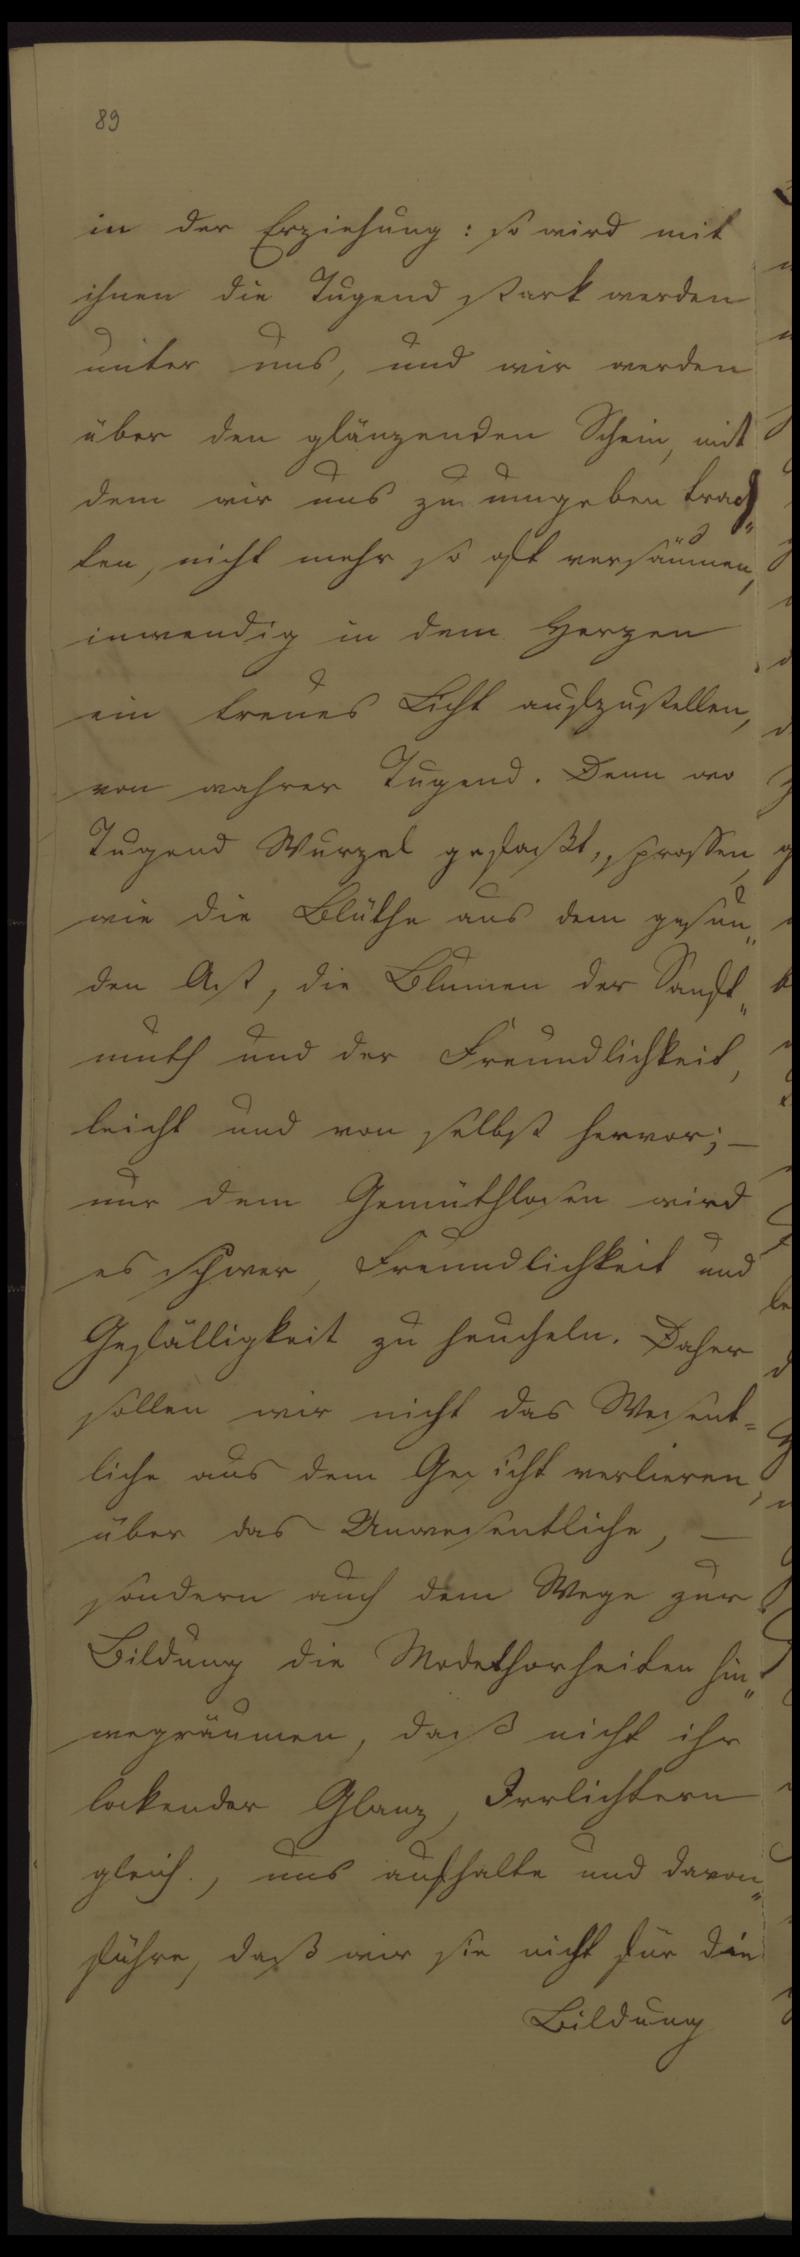 89
in der Erziehung: so wird mit
ihnen die Tugend stark werden
unter uns, und wir werden
über den glänzenden Schein, mit
dem wir uns zu umgeben trach„
ten, nicht mehr so oft versäumen,
inwendig in dem Herzen
ein treues Licht aufzustellen,
von wahrer Tugend. Denn wo
Tugend Wurzel gefaßt, sprossen,
wie die Blüthe aus dem gesun„
den Ast, die Blumen der Sanft„
muth und der Freundlichkeit,
leicht und von selbst hervor; —
nur dem Gemüthlosen wird
es schwer, Freundlichkeit und
Gefälligkeit zu heucheln. Daher
sollen wir nicht das Wesent=
liche aus dem Gesicht verlieren,
über das Unwesentliche, —
sondern auf dem Wege zur
Bildung die Modethorheiten hin„
wegräumen, daß nicht ihr
lockender Glanz, Irrlichtern
gleich, uns aufhalte und davon„
führe, daß wir sie nicht für die
Bildung